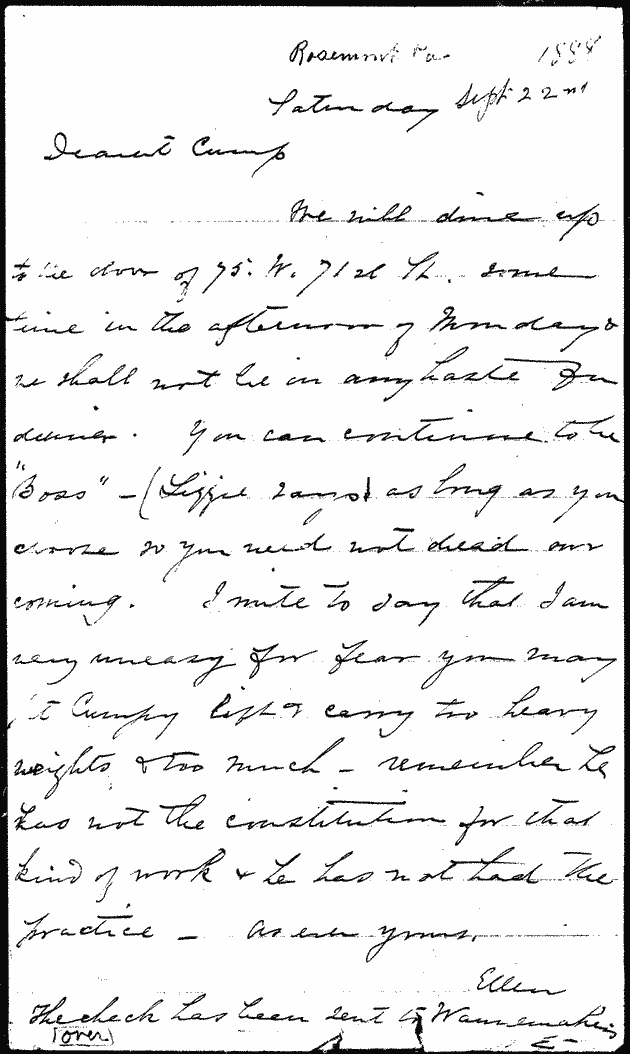 Rosemont Pa. 1888
Saturday Sept 22nd
Dearest Cump
We will drive up
to the door of 75. W. 71st St. some
time in the afternoon of Monday &
we shall not be in any haste for
dinner. You can continue to be
"Boss" - (Lizzie says) as long as you
choose so you need not dread our
coming. I write to say that I am
very uneasy for fear you may
let Cumpy lift & carry too heavy
weights & too much - remember he
has not the constitution for that
kind of work & he has not had the
practice - As ever yours,
Ellen
The check has been sent to Wannemakers
E-
(over)